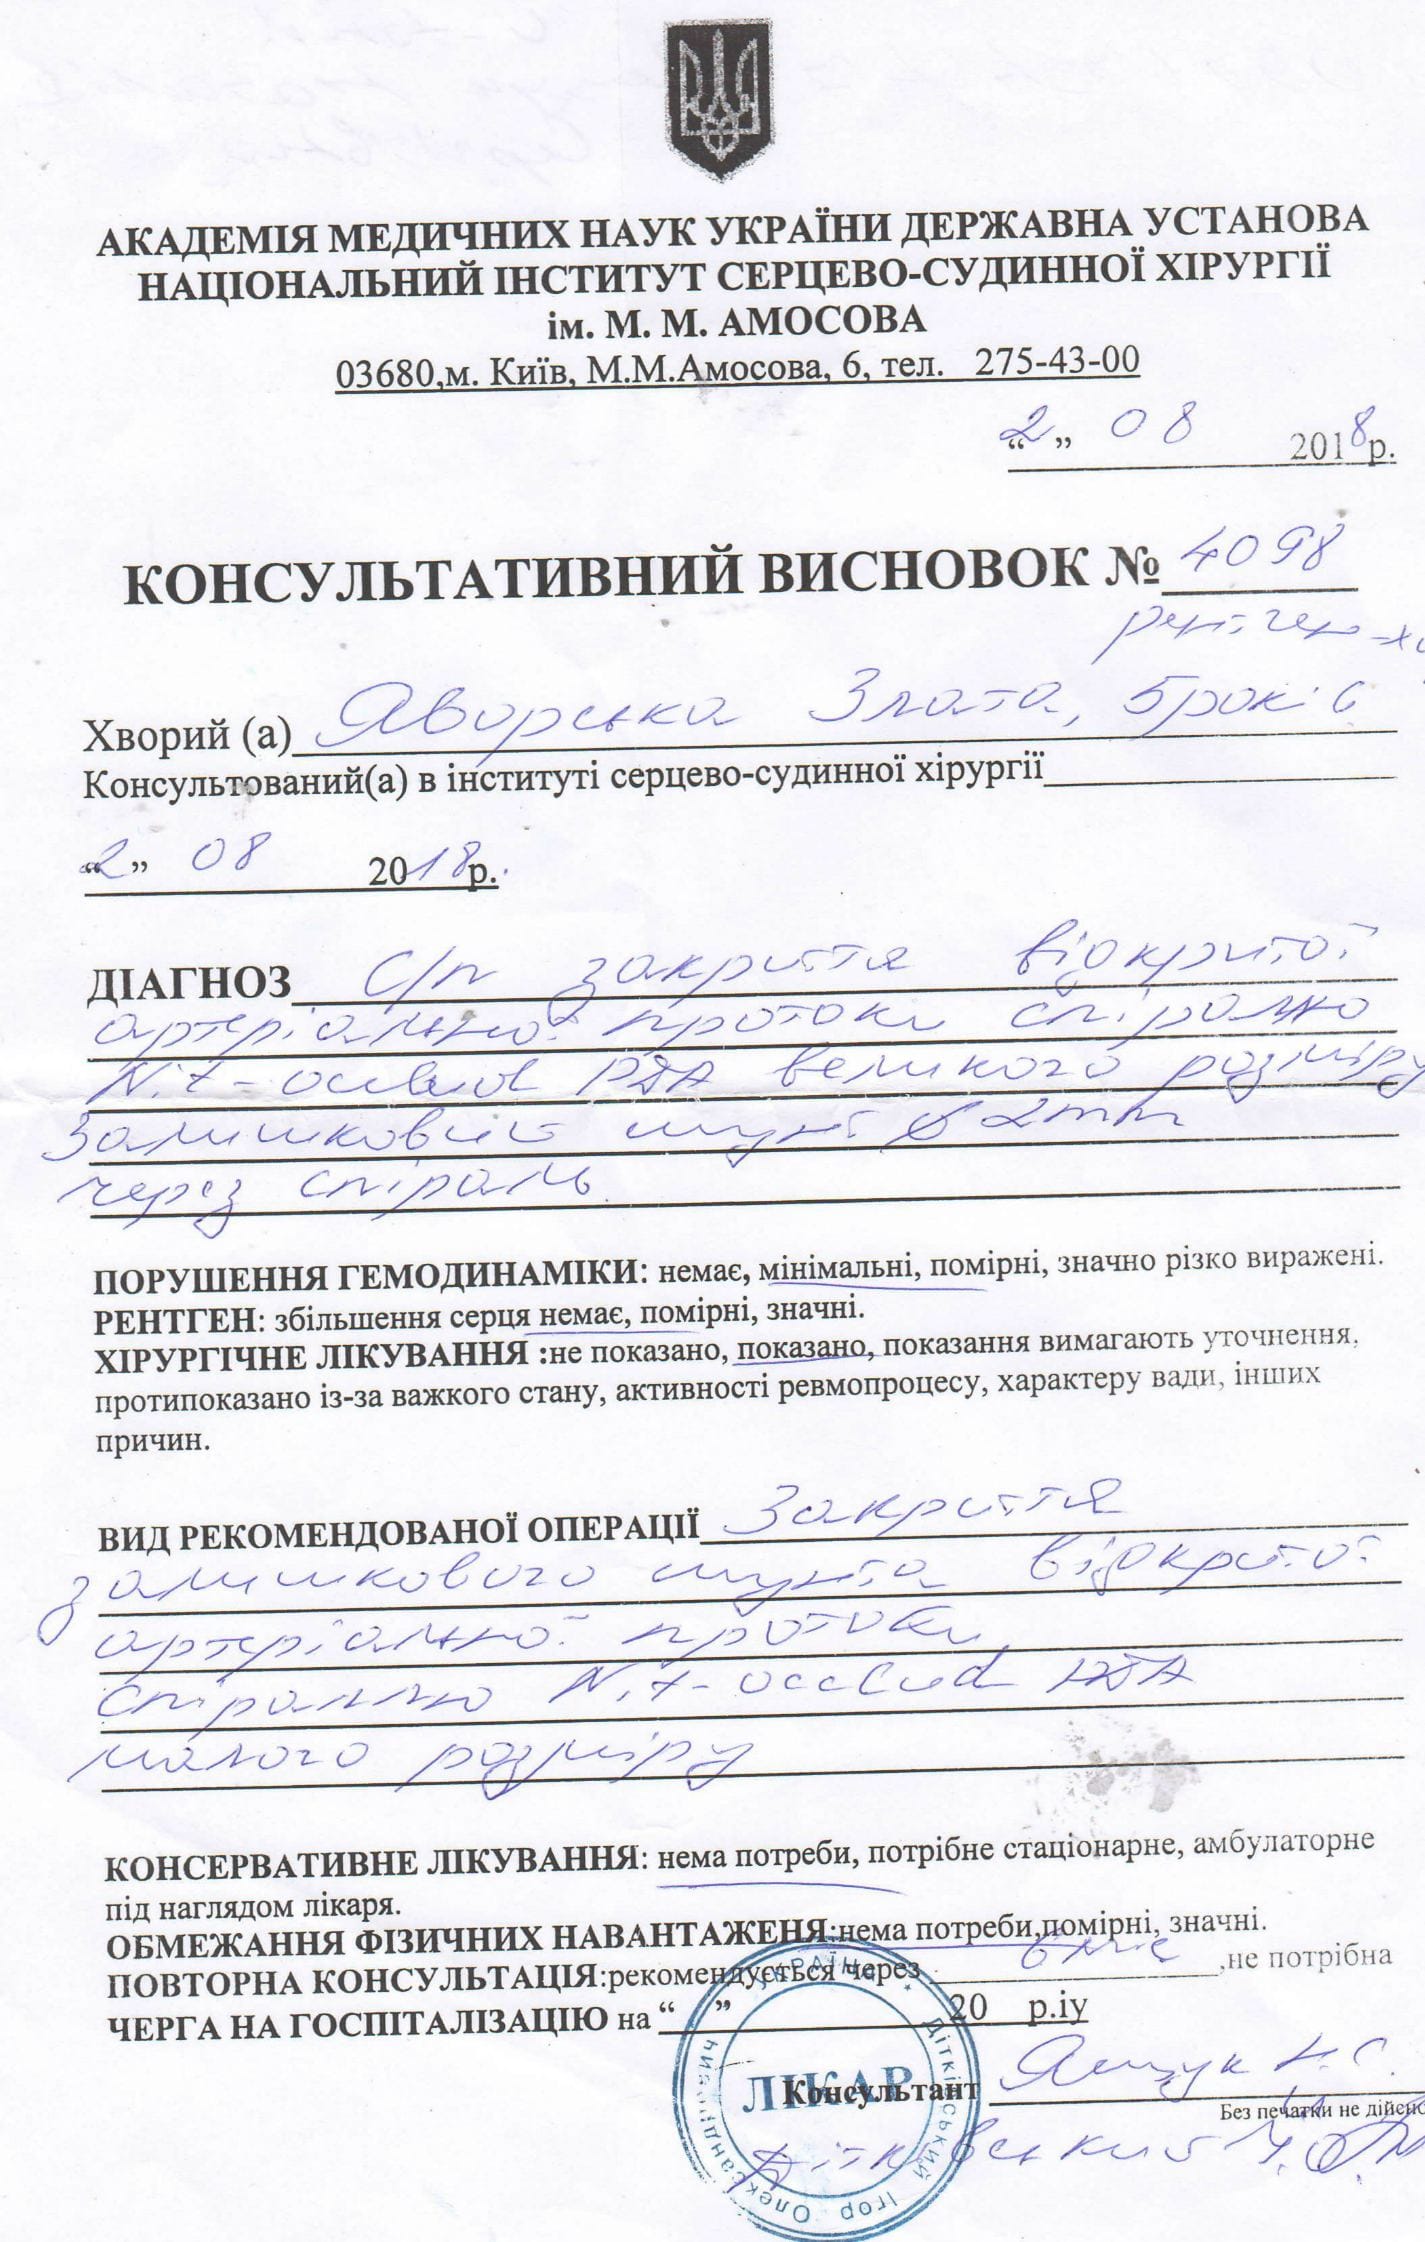 АКАДЕМІЯ МЕДИЧНИХ НАУК УКРАЇНИ ДЕРЖАВНА УСТАНОВА
НАЦІОНАЛЬНИЙ ІНСТИТУТ СЕРЦЕВО-СУДИННОЇ ХІРУРГІЇ
ім. М. М. АМОСОВА
03680,м. Київ, М.М.Амосова, 6, тел. 275-43-00
“2” 08 2018р.
КОНСУЛЬТАТИВНИЙ ВИСНОВОК № 4098
рентген-х
Хворий (а) Яворська Злата, 5 років
Консультований(а) в інституті серцево-судинної хірургії
“2” 08 2018р.
ДІАГНОЗ С/п закриття відкритої
артеріальної протоки спіраллю
Nit-occlud PDA великого розміру
Залишковий шунт 2mm
через спіраль
ПОРУШЕННЯ ГЕМОДИНАМІКИ: немає, мінімальні, помірні, значно різко виражені.
РЕНТГЕН: збільшення серця немає, помірні, значні.
ХІРУРГІЧНЕ ЛІКУВАННЯ :не показано, показано, показання вимагають уточнення,
протипоказано із-за важкого стану, активності ревмопроцесу, характеру вади, інших
причин.
ВИД РЕКОМЕНДОВАНОЇ ОПЕРАЦІЇ Закриття
залишкового шунта відкритої
артеріальної протоки
спіраллю Nit-occlud PDA
малого розміру
КОНСЕРВАТИВНЕ ЛІКУВАННЯ: нема потреби, потрібне стаціонарне, амбулаторне
під наглядом лікаря.
ОБМЕЖАННЯ ФІЗИЧНИХ НАВАНТАЖЕНЯ:нема потреби,помірні, значні.
ПОВТОРНА КОНСУЛЬТАЦІЯ:рекомендується через 6 міс ,не потрібна
ЧЕРГА НА ГОСПІТАЛІЗАЦІЮ на “ ” 20 р.іу
Консультант Ящук Н.С.
Без печатки не дійсно
Дітківський І.О.
УКРАЇНА * Дітківський Ігор Олександрович
ЛІКАР